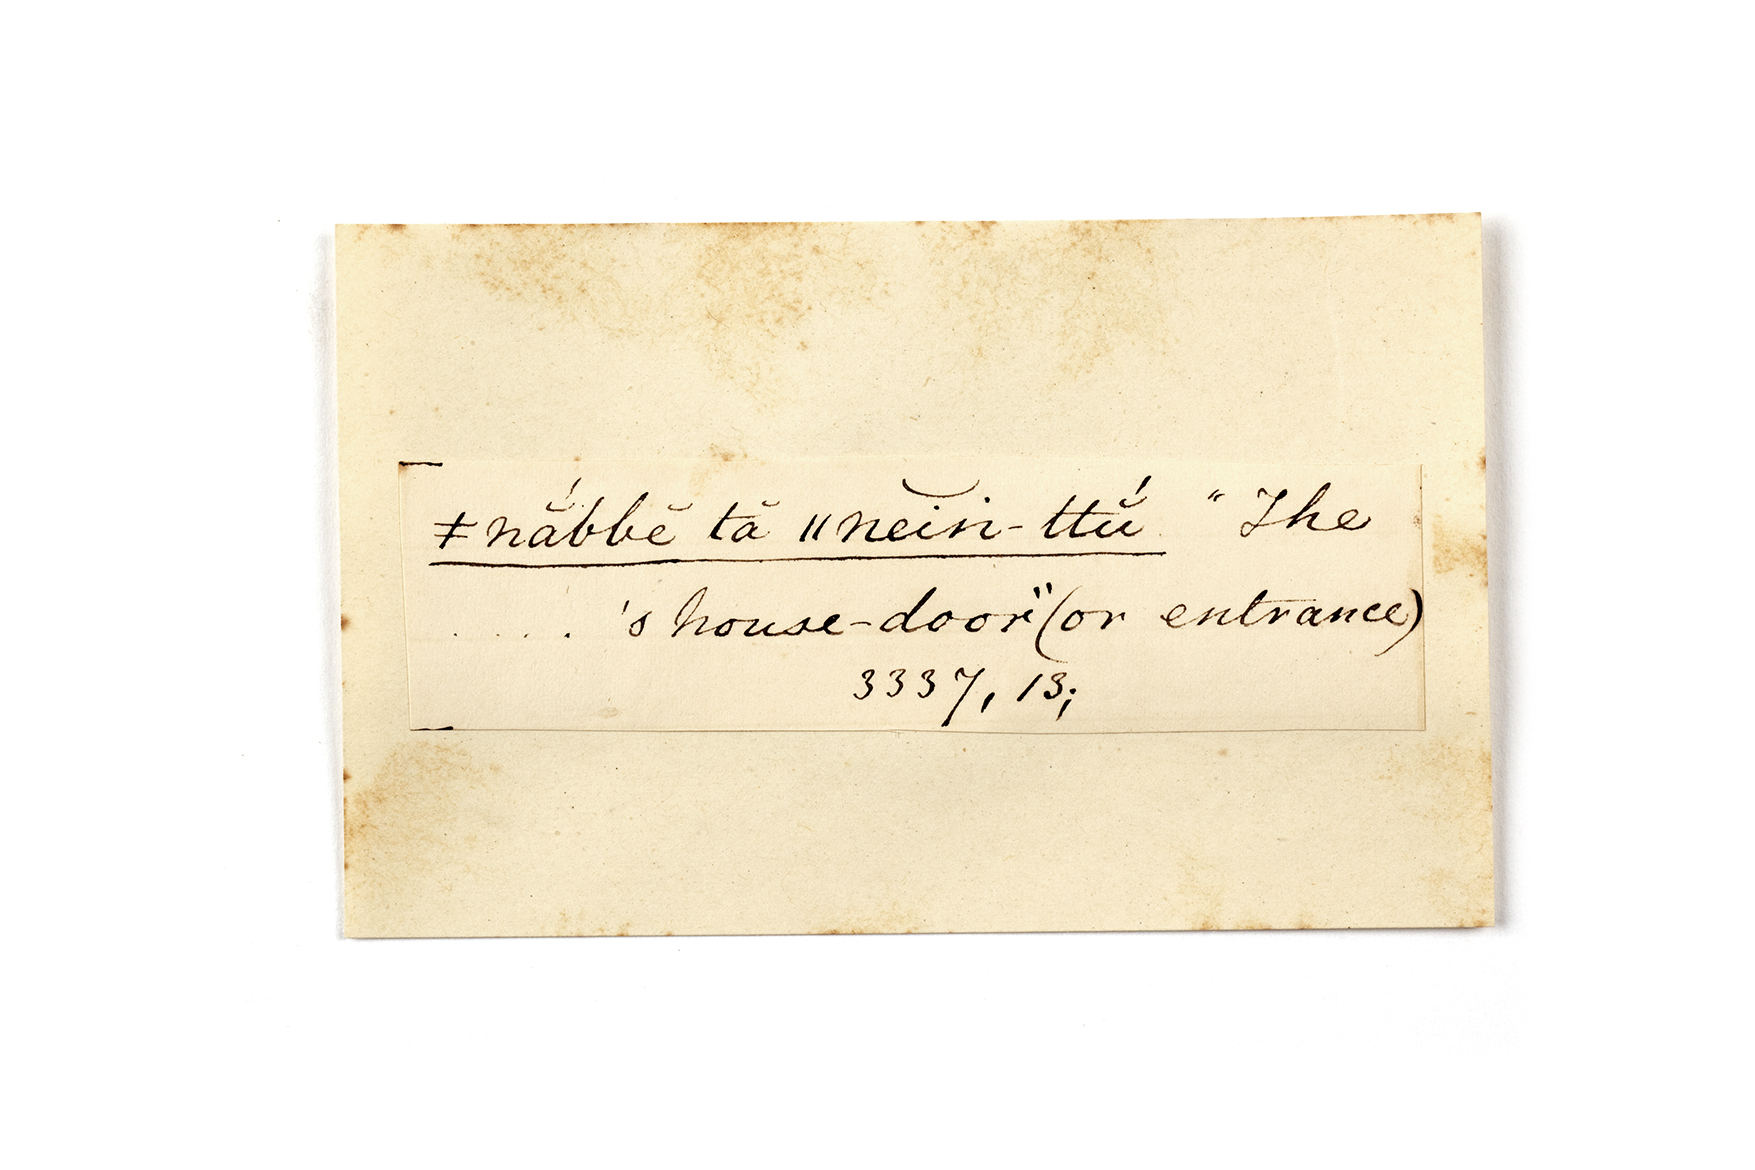 ǂnắbbĕ tă ǁne͝in-ttŭ́ "The
. . . . 's house-door" (or entrance)
3337, 13;